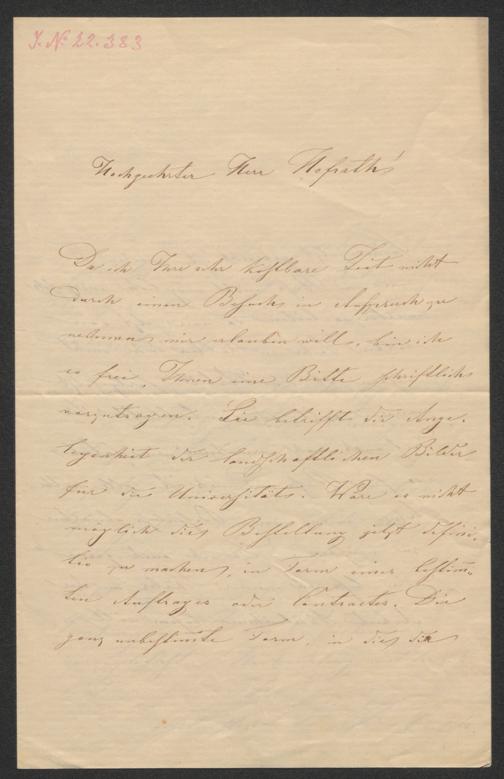 J. № 22.383
Hochgeehrter Herr Hofrath!
Da ich Ihre sehr kostbare Zeit nicht
durch einen Besuch in Anspruch zu
nehmen mir erlauben will, bin ich
so frei, Ihnen eine Bitte schriftlich
vorzutragen. Sie betrifft die Ange-
legenheit der landschaftlichen Bilder
für die Universität. Wäre es nicht
möglich die Bestellung jetzt defini-
tiv zu machen, in Form eines bestim-
ten Auftrages oder Contractes. Die
ganz unbestimte Form, in dies